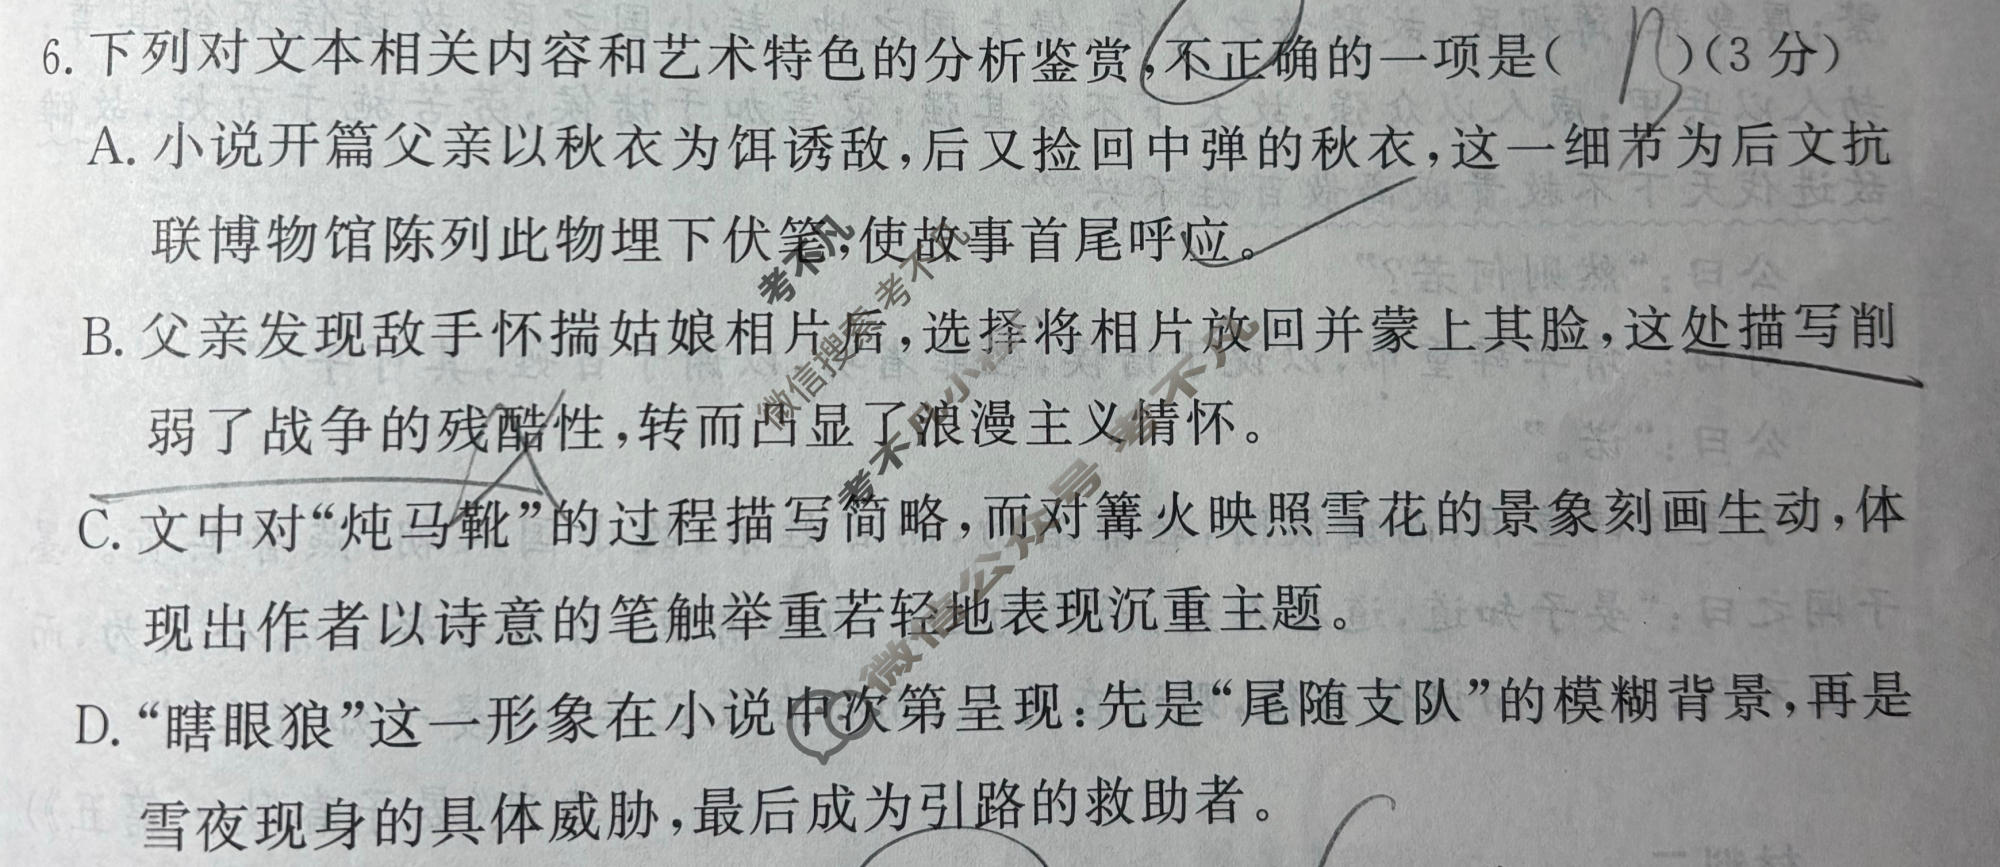 6. 下列对文本相关内容和艺术特色的分析鉴赏,不正确的一项是( B )(3分)
A. 小说开篇父亲以秋衣为饵诱敌,后又捡回中弹的秋衣,这一细节为后文抗
联博物馆陈列此物埋下伏笔,使故事首尾呼应。
B. 父亲发现敌手怀揣姑娘相片后,选择将相片放回并蒙上其脸,这处描写削
弱了战争的残酷性,转而凸显了浪漫主义情怀。
C. 文中对“炖马靴”的过程描写简略,而对篝火映照雪花的景象刻画生动,体
现出作者以诗意的笔触举重若轻地表现沉重主题。
D. “瞎眼狼”这一形象在小说中次第呈现:先是“尾随支队”的模糊背景,再是
雪夜现身的具体威胁,最后成为引路的救助者。
考不凡
微信搜索 考不凡
考不凡小程序
微信公众号 考不凡